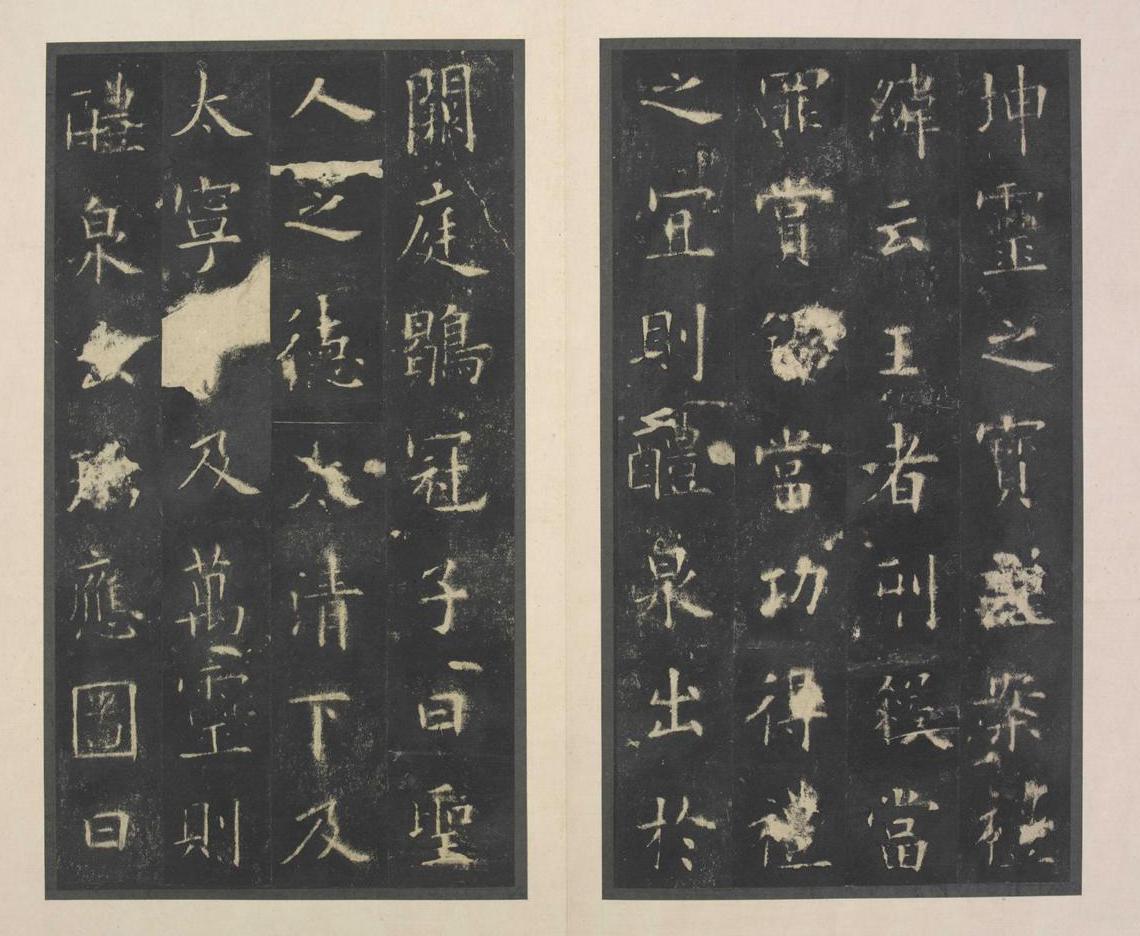 坤靈之寶案禮
緯云王者刑殺當
罪賞當功得禮
之宜則醴泉出於
闕庭鶡冠子曰聖
人之德太清下及
太寧及萬靈則
醴泉應圖曰